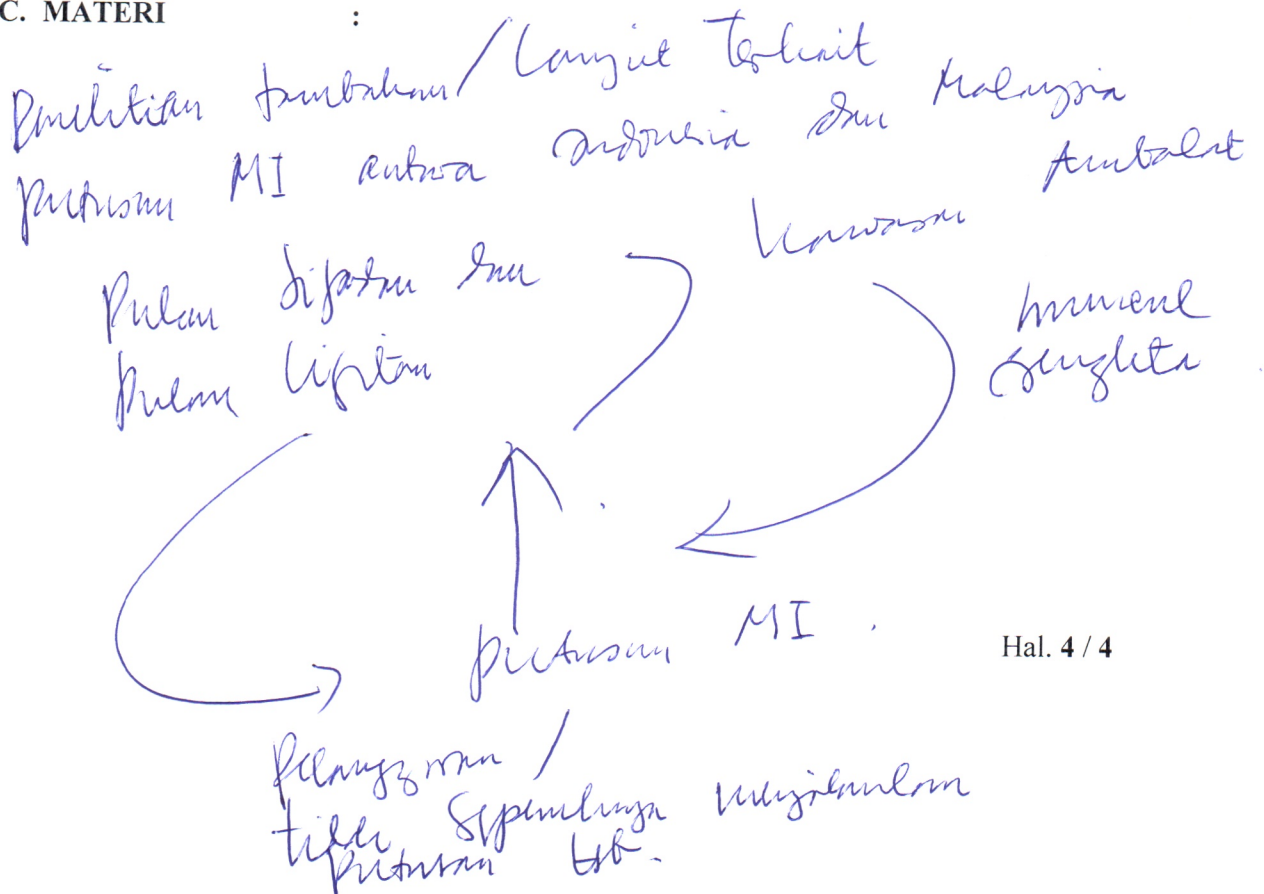 C. MATERI :
Penelitian tambahan / lanjut terkait
putusan MI antara Indonesia dan Malaysia
Pulau Sipadan dan
Pulau Ligitan
Kawasan Ambalat
muncul
sengketa
putusan MI.
Hal. 4 / 4
Pelanggaran /
tidak sepenuhnya menjalankan
putusan tsb.